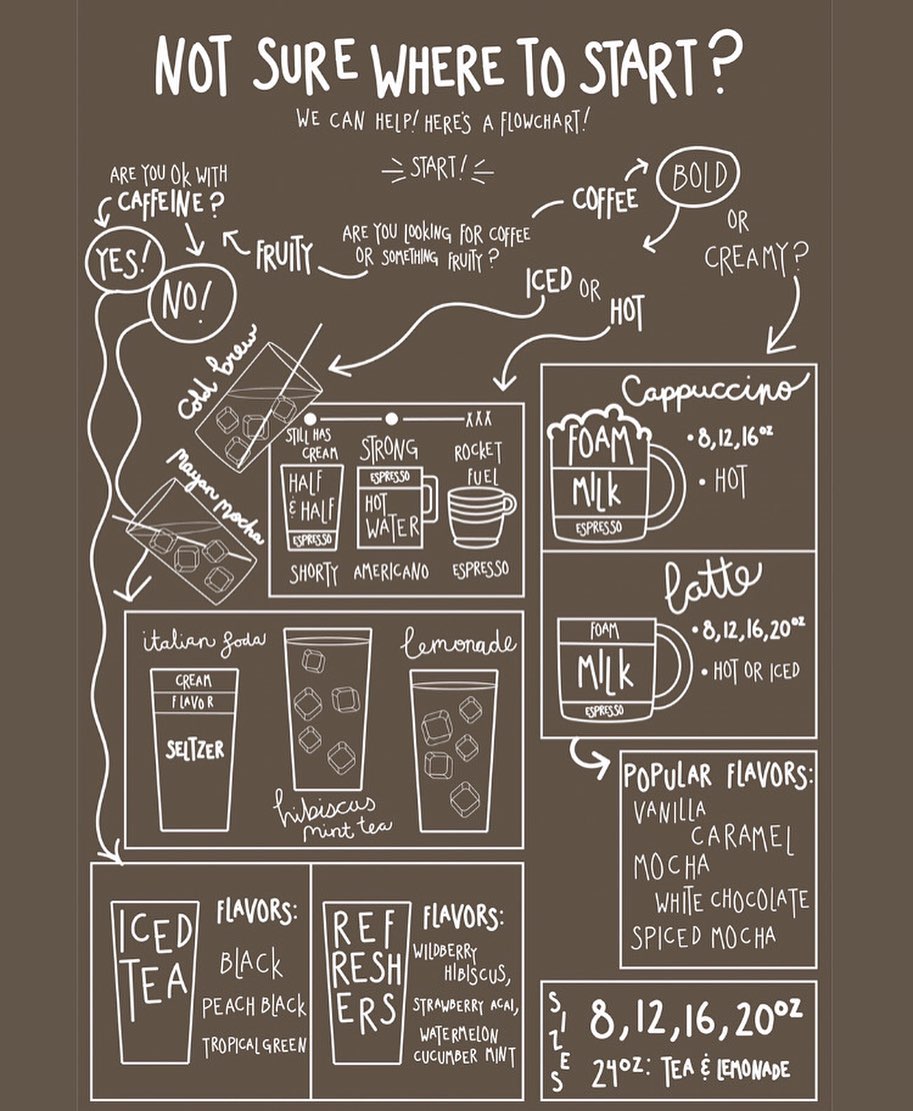 NOT SURE WHERE TO START?
WE CAN HELP! HERE'S A FLOWCHART!
START!
ARE YOU LOOKING FOR COFFEE
OR SOMETHING FRUITY?
FRUITY
ARE YOU OK WITH
CAFFEINE?
YES!
NO!
COFFEE
BOLD
OR
CREAMY?
ICED OR
HOT
Cold brew
Mayan mocha
XXX
STILL HAS
CREAM
HALF
& HALF
ESPRESSO
SHORTY
STRONG
ESPRESSO
HOT
WATER
AMERICANO
ROCKET
FUEL
ESPRESSO
Cappuccino
FOAM
MILK
ESPRESSO
• 8, 12, 16oz
• HOT
latte
FOAM
MILK
ESPRESSO
• 8, 12, 16, 20oz
• HOT OR ICED
italian soda
CREAM
FLAVOR
SELTZER
hibiscus
mint tea
lemonade
POPULAR FLAVORS:
VANILLA
CARAMEL
MOCHA
WHITE CHOCOLATE
SPICED MOCHA
ICED
TEA
FLAVORS:
BLACK
PEACH BLACK
TROPICAL GREEN
REF
RESH
ERS
FLAVORS:
WILDBERRY
HIBISCUS,
STRAWBERRY ACAI,
WATERMELON
CUCUMBER MINT
SIZES
8, 12, 16, 20oz
24oz: TEA & LEMONADE